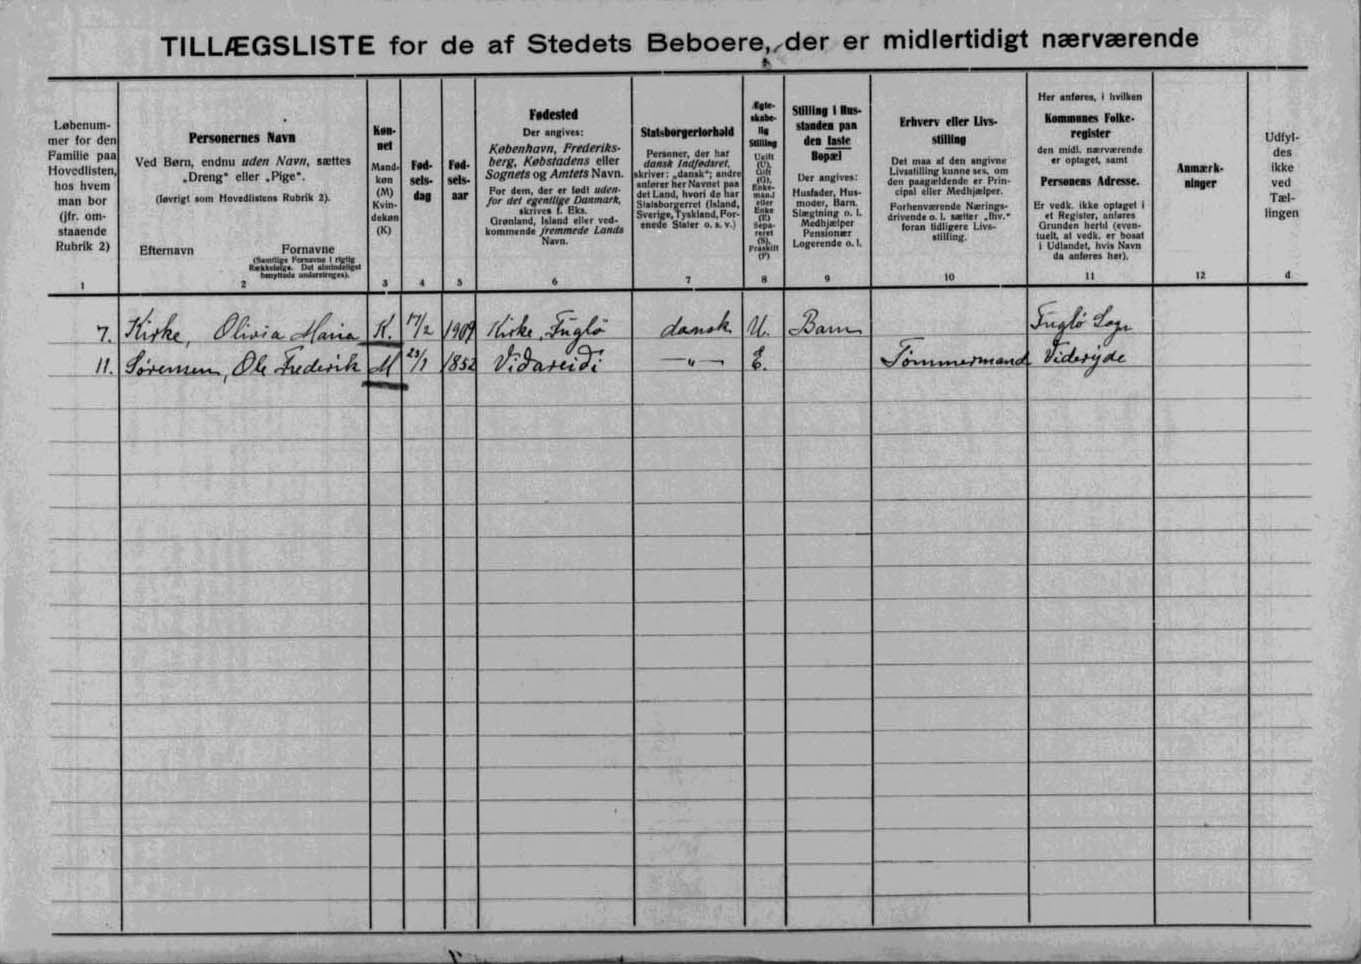 TILLÆGSLISTE for de af Stedets Beboere, der er midlertidigt nærværende
Løbenum-
mer for den
Familie paa
Hovedlisten,
hos hvem
man bor
(jfr. om-
staaende
Rubrik 2)
1
Personernes Navn
Ved Børn, endnu uden Navn, sættes
„Dreng“ eller „Pige“.
(Iøvrigt som Hovedlistens Rubrik 2).
Efternavn Fornavne
(Samtlige Fornavne i rigtig
Rækkefølge. Det almindeligst
benyttede understreges).
2
Køn-
net
Mand-
køn
(M)
Kvin-
dekøn
(K)
3
Fød-
sels-
dag
4
Fød-
sels-
aar
5
Fødested
Der angives:
København, Frederiks-
berg, Købstadens eller
Sognets og Amtets Navn.
For dem, der er født uden-
for det egentlige Danmark,
skrives f. Eks.
Grønland, Island eller ved-
kommende fremmede Lands
Navn.
6
Statsborgerforhold
Personer, der har
dansk Indfødsret,
skriver: „dansk“; andre
anfører her Navnet paa
det Land, hvori de har
Statsborgerret (Island,
Sverige, Tyskland, For-
enede Stater o. s. v.)
7
Ægte-
skabe-
lig
Stilling
Ugift
(U),
Gift
(G),
Enke-
mand
eller
Enke
(E)
Sepa-
reret
(S),
Fraskilt
(F)
8
Stilling i Hus-
standen paa
den faste
Bopæl
Der angives:
Husfader, Hus-
moder, Barn,
Slægtning o. l.
Medhjælper
Pensionær
Logerende o. l.
9
Erhverv eller Livs-
stilling
Det maa af den angivne
Livsstilling kunne ses, om
den paagældende er Prin-
cipal eller Medhjælper.
Forhenværende Nærings-
drivende o. l. sætter „fhv.“
foran tidligere Livs-
stilling.
10
Her anføres, i hvilken
Kommunes Folke-
register
den midl. nærværende
er optaget, samt
Personens Adresse.
Er vedk. ikke optaget i
et Register, anføres
Grunden hertil (even-
tuelt, at vedk. er bosat
i Udlandet, hvis Navn
da anføres her).
11
Anmærk-
ninger
12
Udfyl-
des
ikke
ved
Tæl-
lingen
d
7. Kirke, Olivia Maria K. 17/2 1909 Kirke, Fuglö dansk U. Barn Fuglö Sogn
11. Sörensen, Ole Frederik M 23/1 1852 Vidareidi —„— E. Tömmermand Viderejde